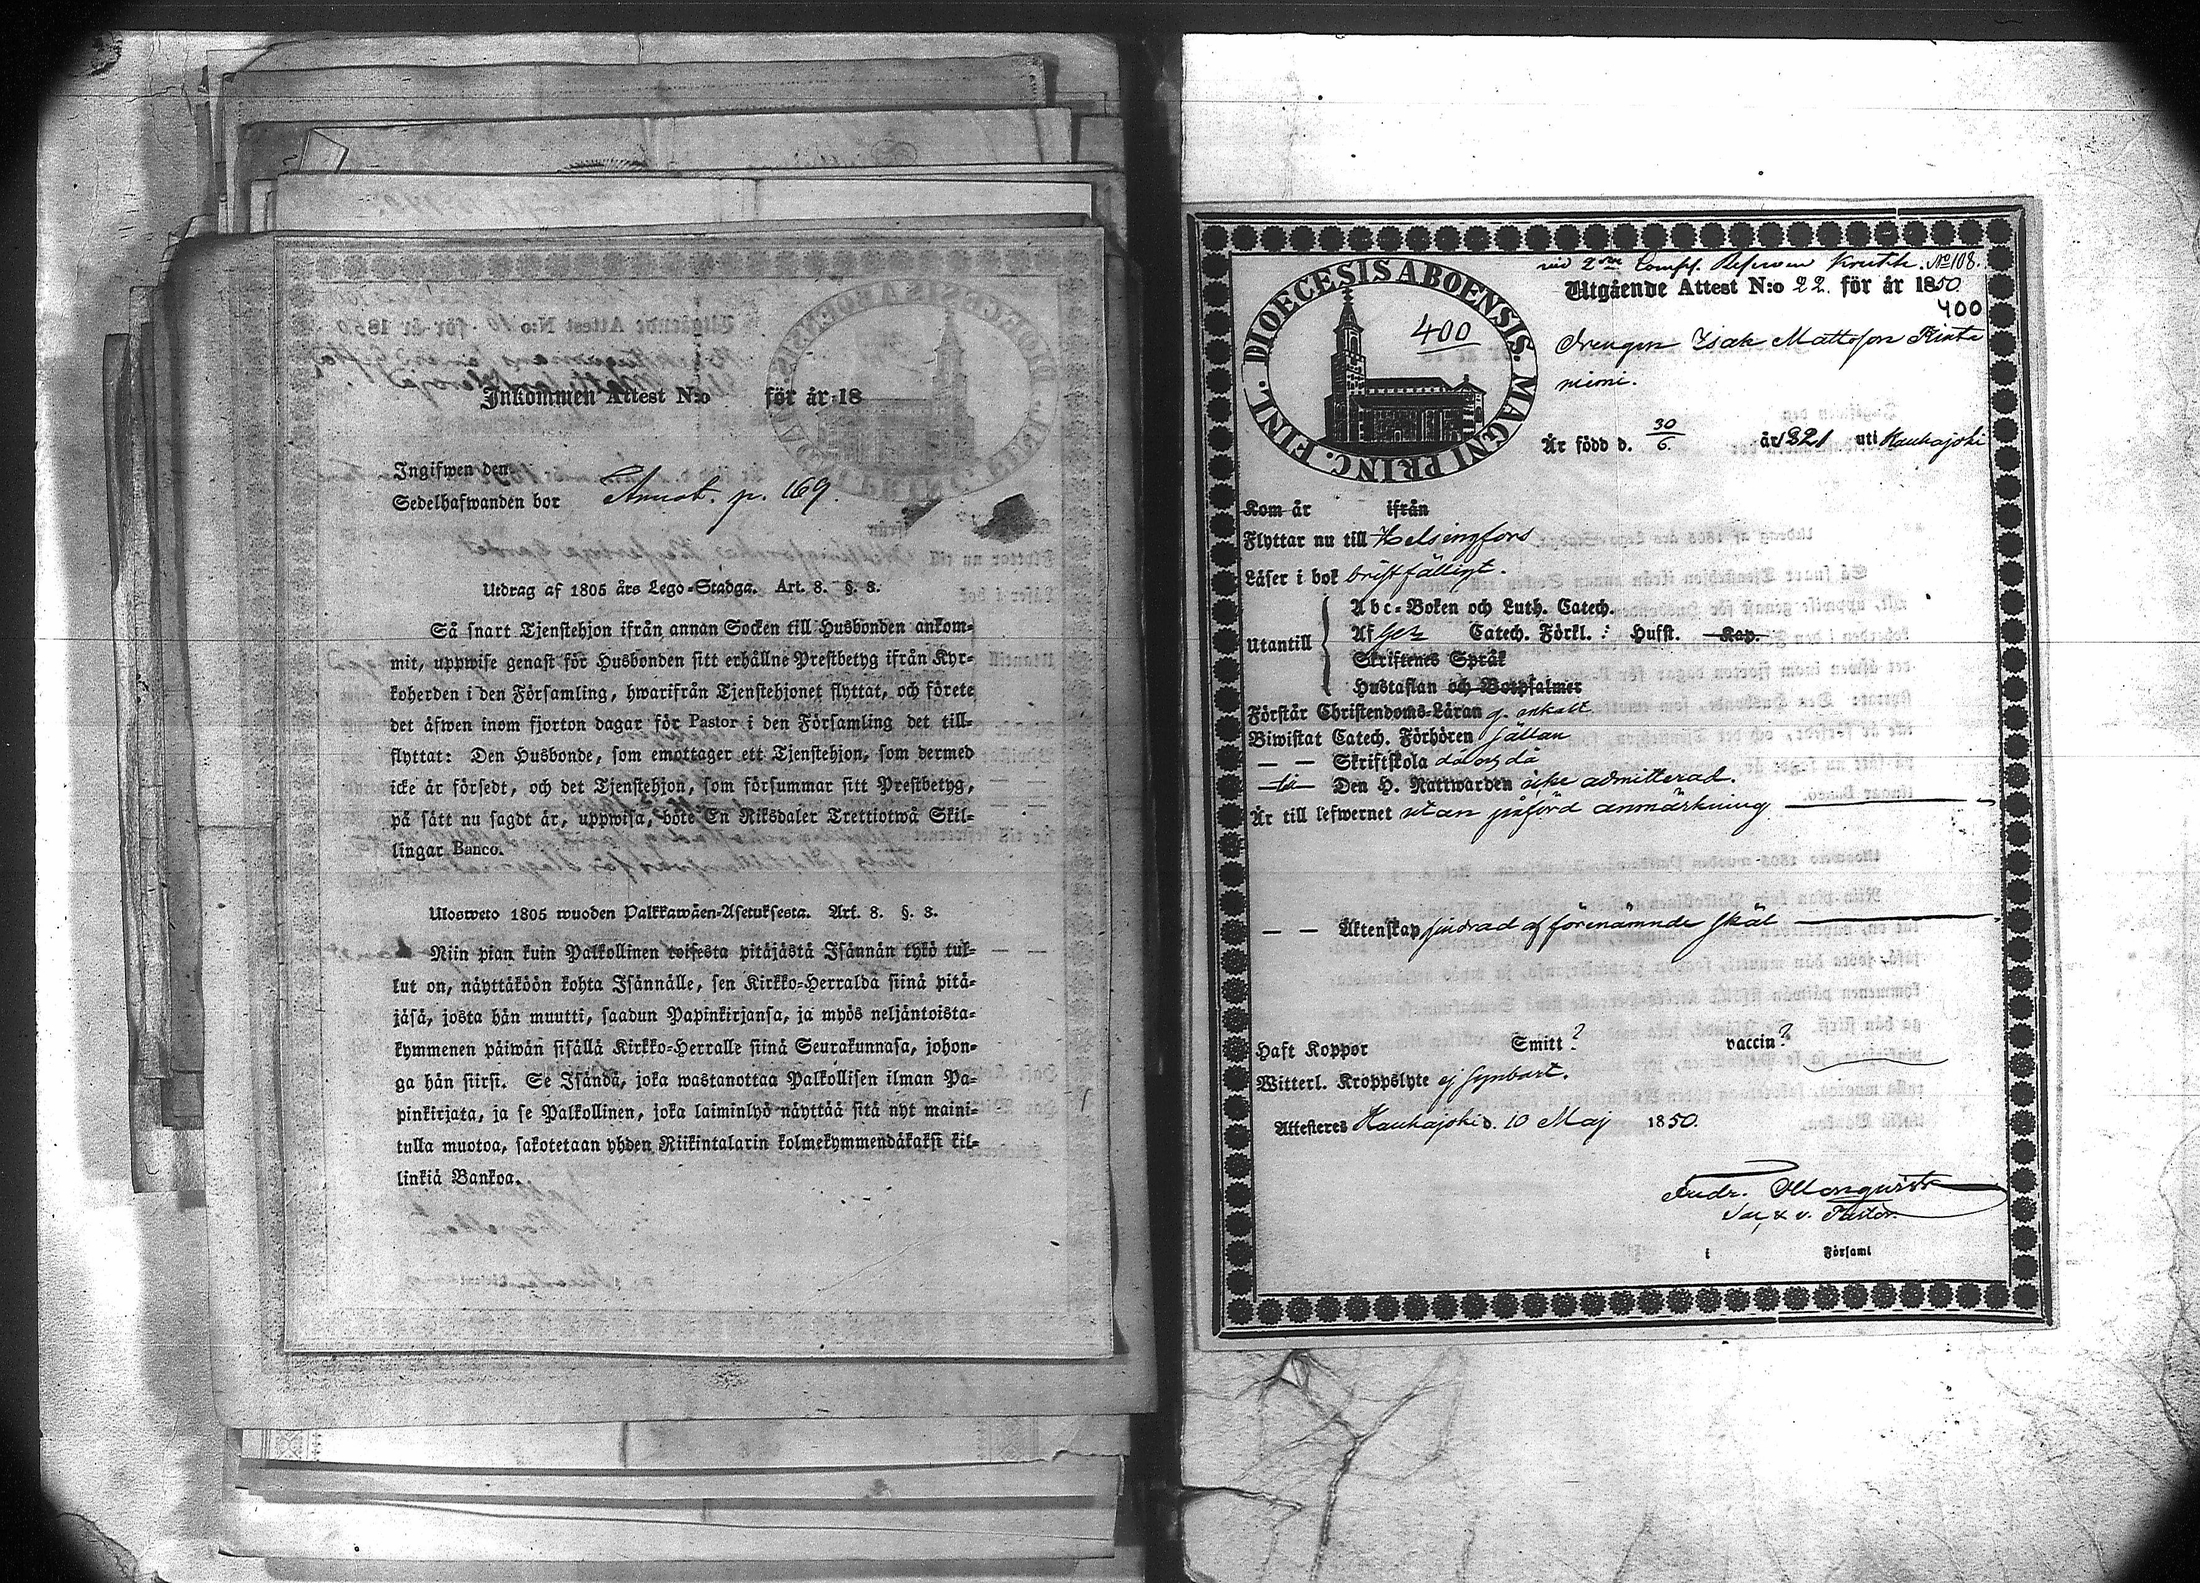 Inkommen Attest N:o för år 18
Ingifwen den
Sedelhafwanden bor Annot. p. 169.
Utdrag af 1805 års Lego-Stadga. Art. 8. §. 8.
Så snart Tjenstehjon ifrån annan Socken till Husbonden ankom-
mit, uppwise genast för Husbonden sitt erhållne Prestbetyg ifrån Kyr-
koherden i den Församling, hwarifrån Tjenstehjonet flyttat, och förete
det äfwen inom fjorton dagar för Pastor i den Församling det till-
flyttat: Den Husbonde, som emottager ett Tjenstehjon, som dermed
icke är försedt, och det Tjenstehjon, som försummar sitt Prestbetyg,
på sätt nu sagdt är, uppwisa, böte En Riksdaler Trettiotwå Skil-
lingar Banco.
Ulosweto 1805 wuoden Palkkawäen-Asetuksesta. Art. 8. §. 8.
Niin pian kuin Palkollinen toisesta pitäjästä Isännän tykö tul-
lut on, näyttäköön kohta Isännälle, sen Kirkko-Herralda siinä pitä-
jäsä, josta hän muutti, saadun Papinkirjansa, ja myös neljäntoista-
kymmenen päiwän sisällä Kirkko-Herralle siinä Seurakunnasa, johon-
ga hän siirsi. Se Isändä, joka wastanottaa Palkollisen ilman Pa-
pinkirjata, ja se Palkollinen, joka laiminlyö näyttää sitä nyt maini-
tulla muotoa, sakotetaan yhden Riikintalarin kolmekymmendäkaksi kil-
linkiä Bankoa.
DIOECESIS ABOENSIS. MAGNI PRINC. FINL.
400
vid 2 Comp. Reserven N:o 108.
Utgående Attest N:o 22. för år 1850
400
Drengen Isak Mattsson Kinta
niemi.
Är född d. 30/6 år 1821 uti Kauhajoki
Kom år ifrån
Flyttar nu till Helsingfors
Läser i bok bristfälligt.
Utantill
Abc-Boken och Luth. Catech.
Af Catech. Förkl. : Husst. Kap.
Skriftenes Språk
Hustaflan och Botpsalmer
Förstår Christendoms-Läran g. enkelt
Biwistat Catech. Förhören sällan
— — Skriftskola då och då
— — Den H. Nattwarden icke admitterad.
Är till lefwernet utan införd anmärkning
— — Äktenskap hindrad af förenämnde skäl
Haft Koppor Smitt? vaccin?
Witterl. Kroppslyte ej synbart.
Attesteres Kauhajoki d. 10 Maj 1850.
Andr.
Sac. & v. Pastor.
i Församl